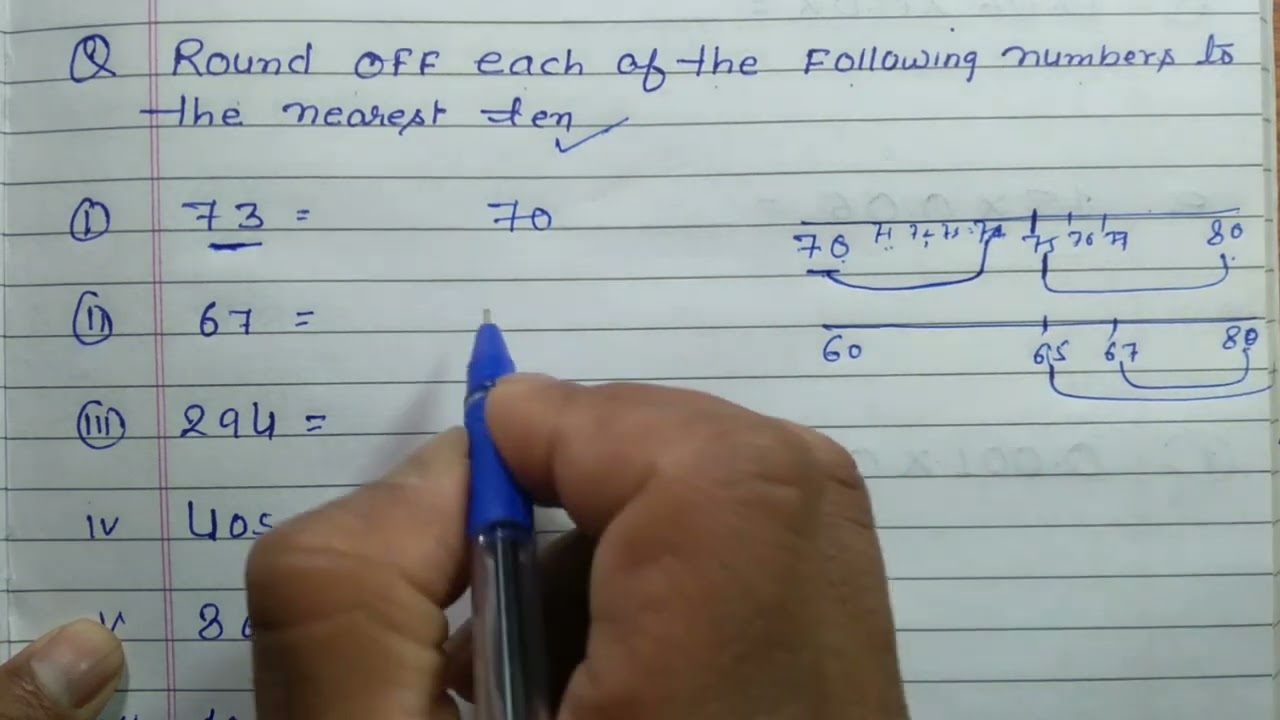 Q Round off each of the following numbers to
the nearest ten
(i) 73 = 70
70 71 75 76 77 80
(ii) 67 =
60 65 67 80
(iii) 294 =
iv 405
v